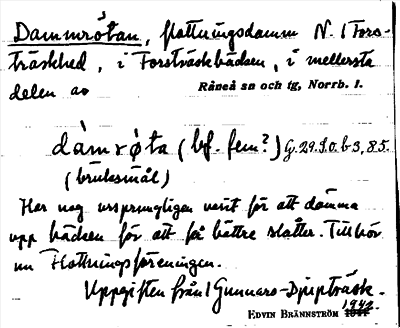 Dammrötan, flottningsdamm N. i Fors-
träskhed, i Forsträskbäcken, i mellersta
delen av Råneå sn och tg, Norrb. l.
dàmrøta (bf. fem?) G.29.S.0.b-3,85.
(bruksmål)
Har nog ursprungligen varit för att dämma
upp bäcken för att få bättre slåtter. Tillhör
nu Flottningsföreningen.
Uppgiften från Gunnars-Djupträsk.
EDVIN BRÄNNSTRÖM 1942